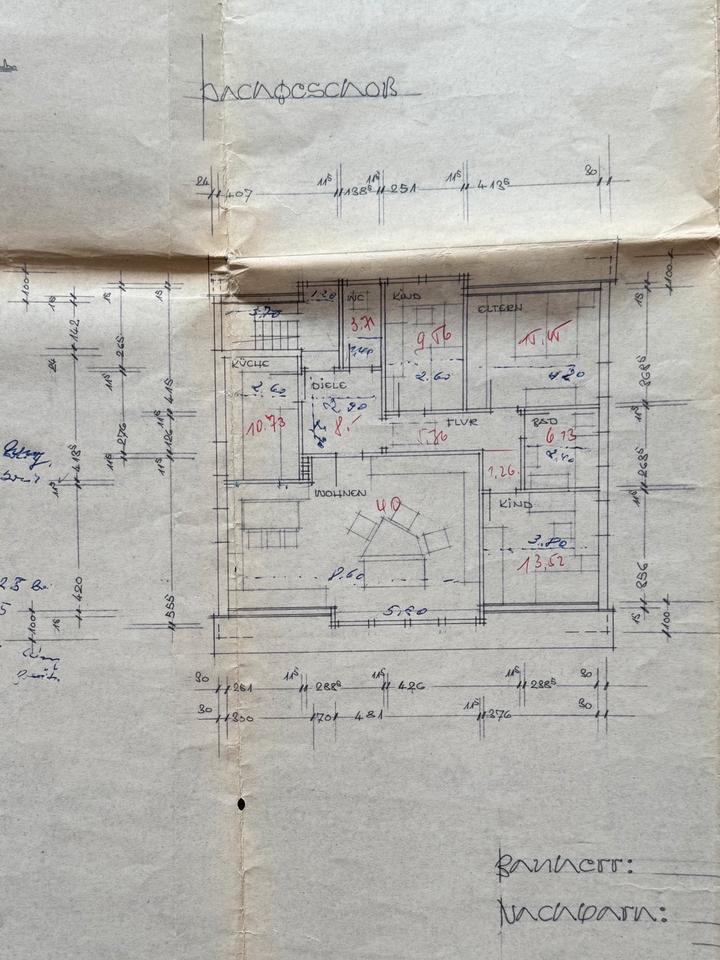 DACHGESCHOß
24 407 11⁵ 138⁵ 11⁵ 251 11⁵ 413⁵ 30
1.20 WC KIND
ELTERN
3.70
3.71 9.56
KÜCHE 1.40
2.60 DIELE 2.60 4.20
2.90
10.73 8.- FLUR BAD
5.76 6.13
2.40
1.26
WOHNEN KIND
40
3.80
13.52
8.60
5.20
100
18 142
24
11⁵ 418⁵
420
18
100
18 265
11⁵ 276
11⁵
18 415
11⁵ 126
11⁵
555
18
100
18 368⁵
11⁵ 263⁵
11⁵ 356
18
100
30 261 11⁵ 288⁵ 11⁵ 426 11⁵ 288⁵ 30
30 300 70 481 11⁵ 376 30
BAUHERR:
NACHBARN: